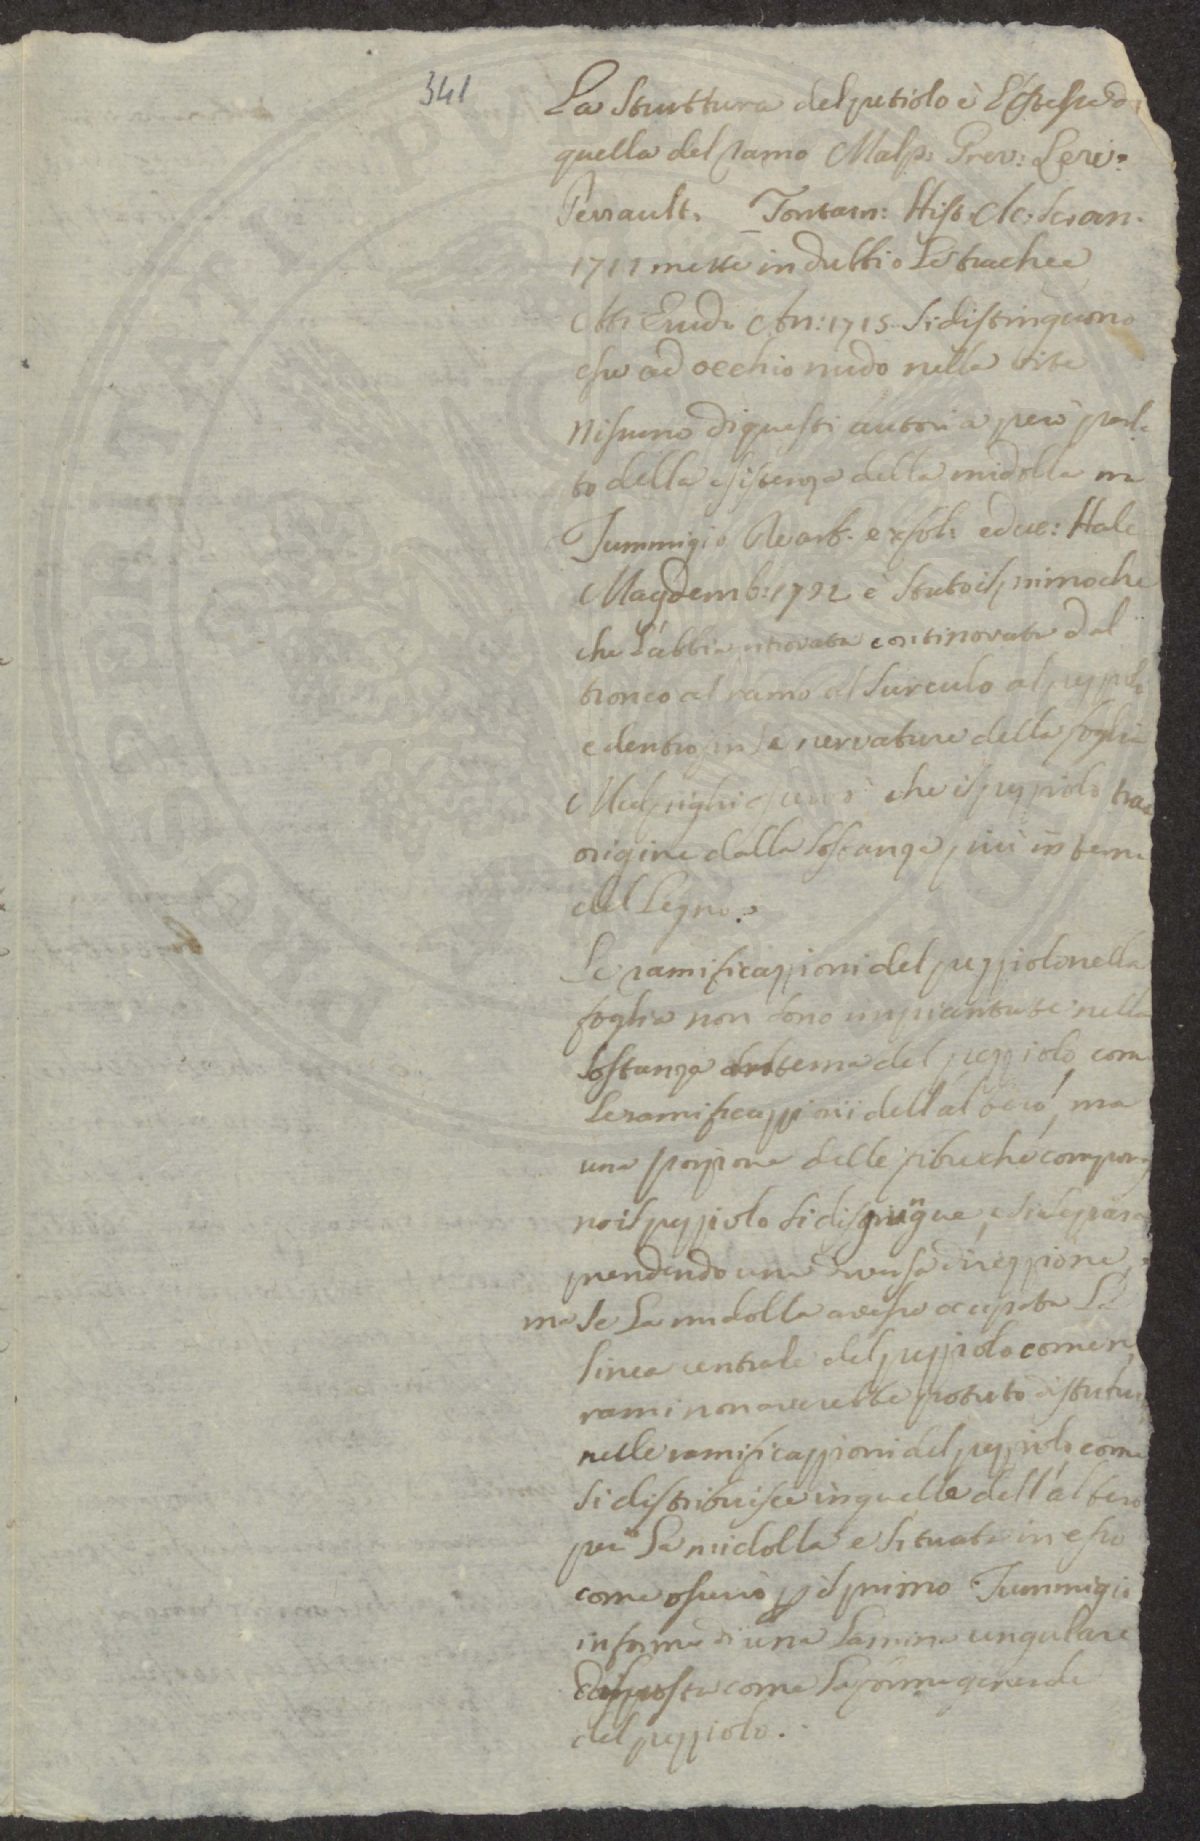 341
La Struttura del petiolo è l'istessa di
quella del ramo Malp: Grev: Leri:
Perrault. Fontan: Hist. Ac: Scian.
1711 mette in dubbio Le trachee
Atti Erud. An: 1715. Si distinguono
che ad occhio nudo nella vite
Nissuno di questi autori à però parla
to della esistenza della midolla ma
Tummigio De arb. ex fol: educ: Hale
Magdemb: 1722 è stato il primo che
che l'abbia ritrovata continovata dal
tronco al ramo al surculo al pezziolo
e dentro in le nervature della foglia
Malpighi osservò che il pezziolo trae
origine dalla sostanza più interna
del Legno.
Le ramificazzioni del pezziolo nella
foglia non sono impiantate nella
sostanza interna del pezziolo, come
Le ramificazzioni dell'albero, ma
una porzione delle fibre che compon
no il pezziolo si disgiungue, e si separa
prendendo una diversa direzzione,
ma se La midolla avesse occupata La
linea centrale del pezziolo come n
rami non averebbe potuto distribu
nelle ramificazzioni del pezziolo come
si distribuisce in quelle dell'albero
però La midolla è situata in esso
come osservò il primo Tummigio
in forma di una Lamina ungulare
disposta come La forma generale
del pezziolo.